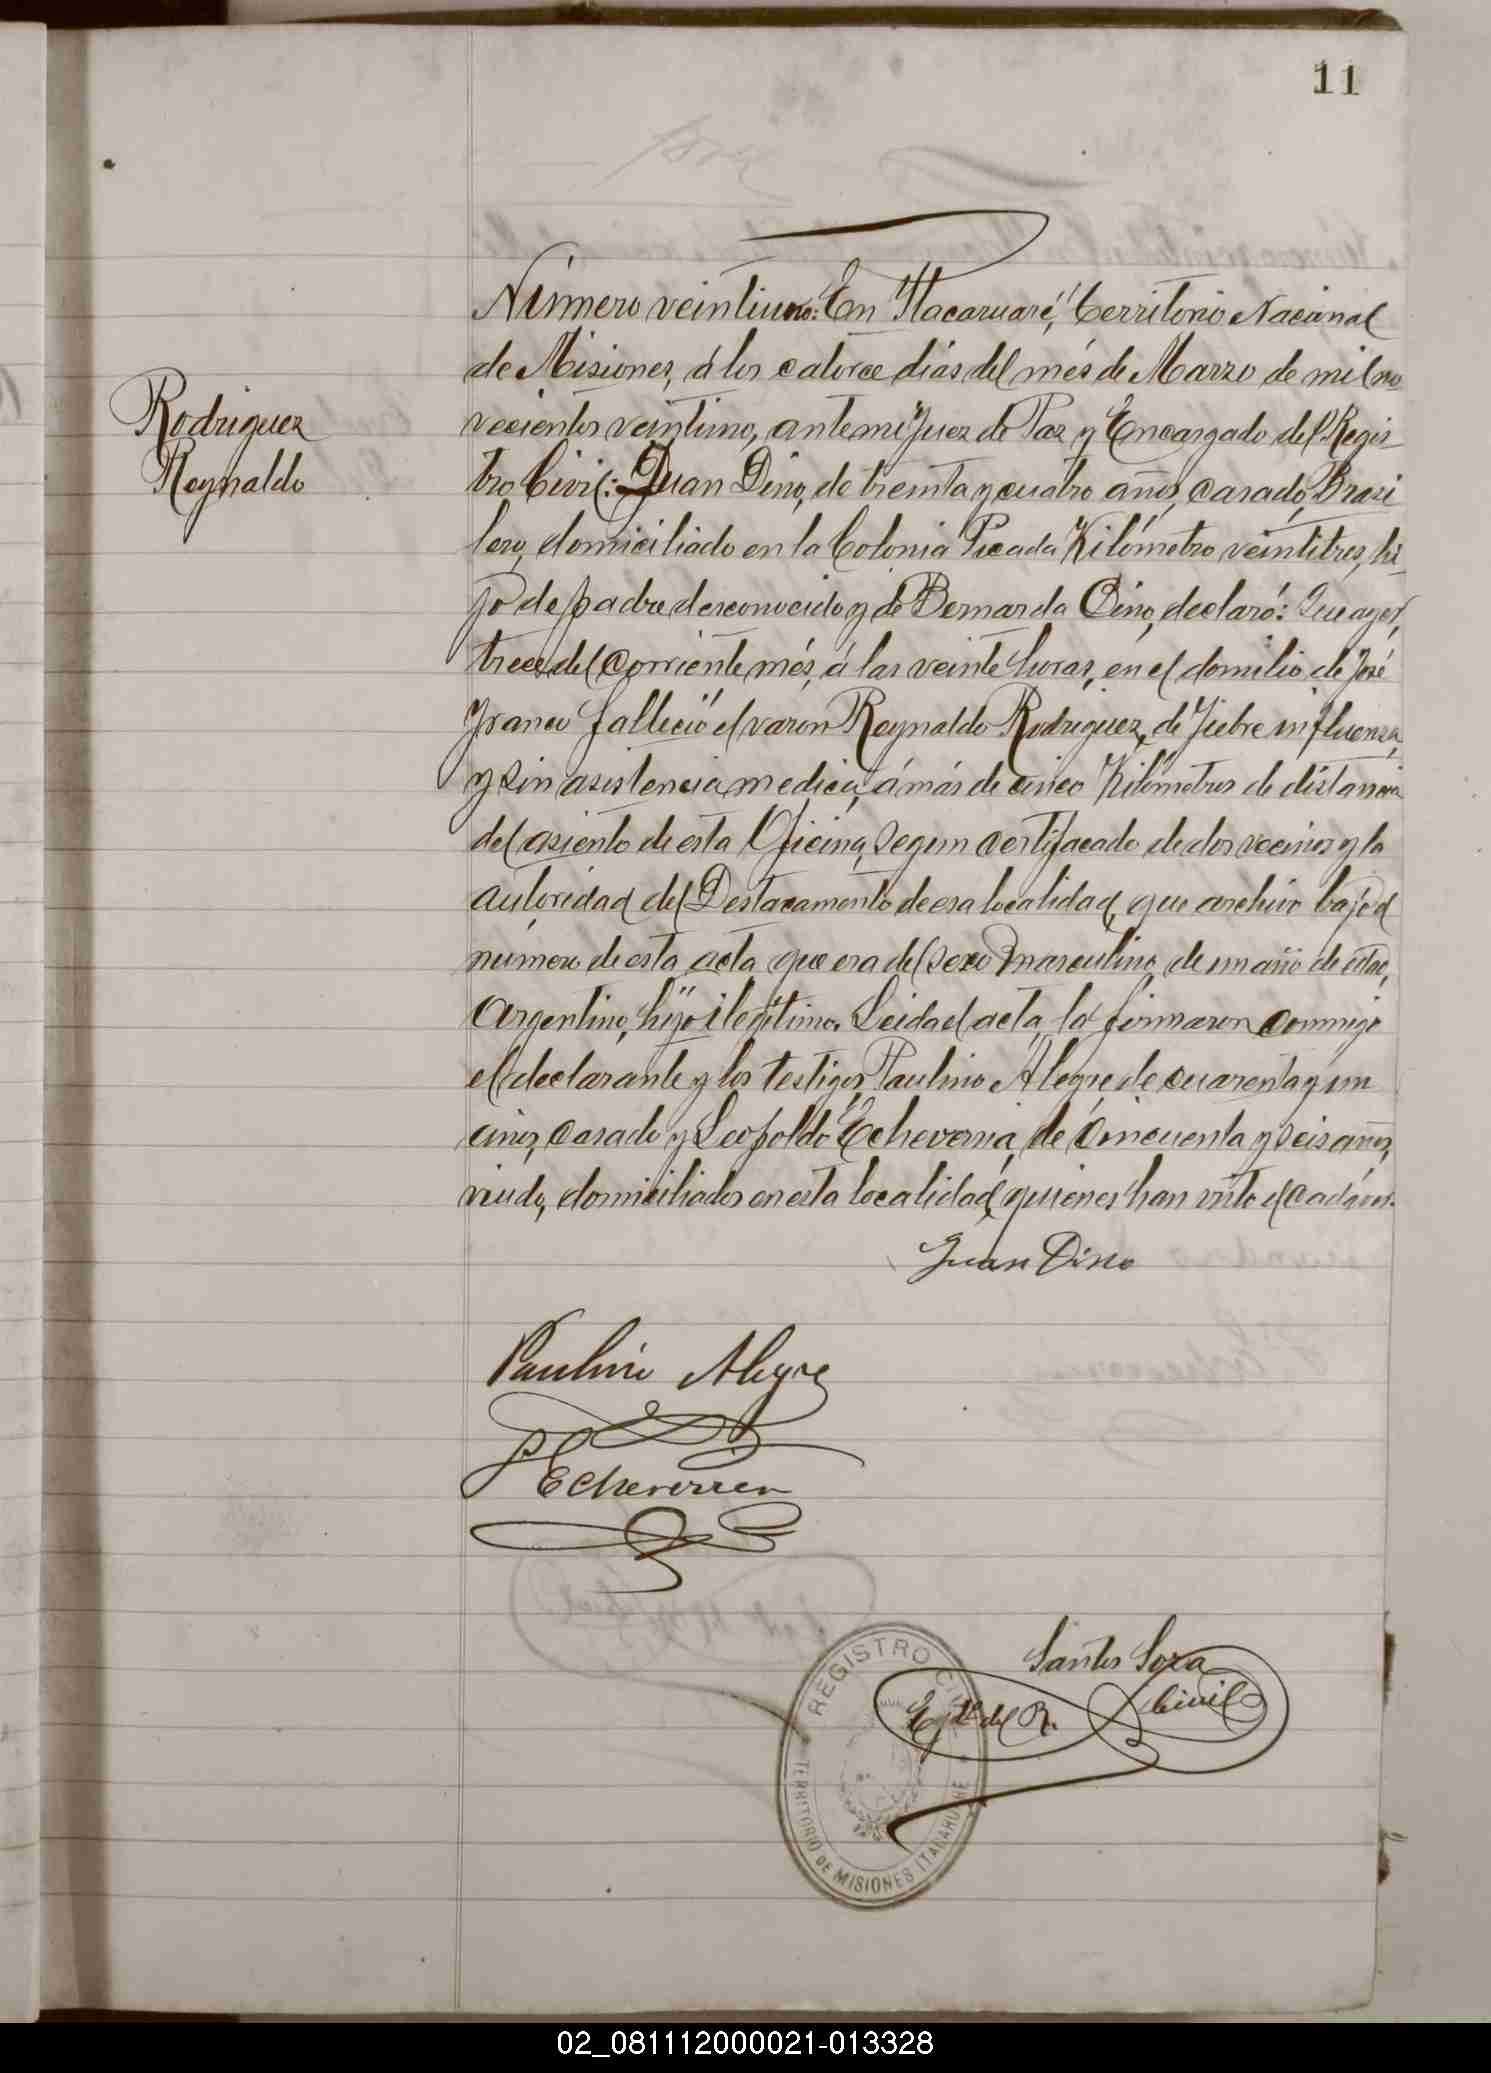 11
Rodriguez
Reynaldo
Número veintiuno: En Itacaruaré, Territorio Nacional
de Misiones, á los catorce dias del més de Marzo de mil no-
vecientos veintiuno, ante mi Juez de Paz y Encargado del Regis-
tro Civil: Juan Dino, de treinta y cuatro años, casado, Brasi
lero, domiciliado en la Colonia Picada Kilómetro veintitres, hi-
jo de padre desconocido y de Bernarda Dino, declaró: Que ayer,
trece del corriente més, á las veinte horas, en el domilio de José
Franco falleció el varon Reynaldo Rodriguez, de fiebre influenza,
y sin asistencia medica, á más de cinco Kilómetros de distancia
del asiento de esta Oficina, segun certifacado de dos vecinos y la
autoridad del Destacamento de esa localidad, que archivo bajo el
número de esta acta que era del sexo masculino, de un año de edad,
Argentino, hijo ilegitimo. Leida el acta, la firmaron conmigo
el declarante y los testigos Paulino Alegre, de cuarenta y un
años, casado y Leopoldo Echeverria, de cincuenta y seis años,
viudo, domiciliados en esta localidad, quienes han visto el cadáver.
Juan Dino
Paulino Alegre
Echeverria
Santos Sora
Egdo. del R. Civil
REGISTRO CIVIL
TERRITORIO DE MISIONES
02_081112000021-013328